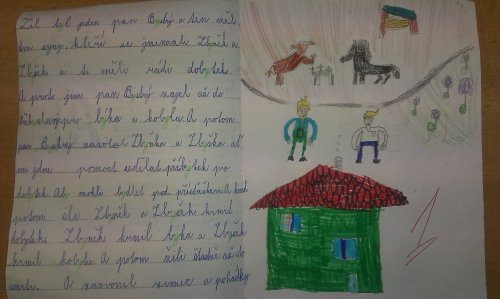 Žil byl jeden pan Bystrý a ten měl
dva syny, kteří se jmenovali Zbyněk a
Zbyšek a ti měli rádi dobytek.
A proto jim pan Bystrý zajel až do
pro býka a kobylu. A potom
pan Bystrý zavolal Zbyňka a Zbyška ať
mu jdou pomoct udělat příbytek pro
dobytek. Aby mohli bydlet pod přístřeškem. A
potom šli Zbyněk a Zbyšek krmit
dobytek. Zbyněk krmil býka a Zbyšek
krmil kobylu. A potom žili šťastně až do
smrti. A zazvonil zvonec a pohádky
1